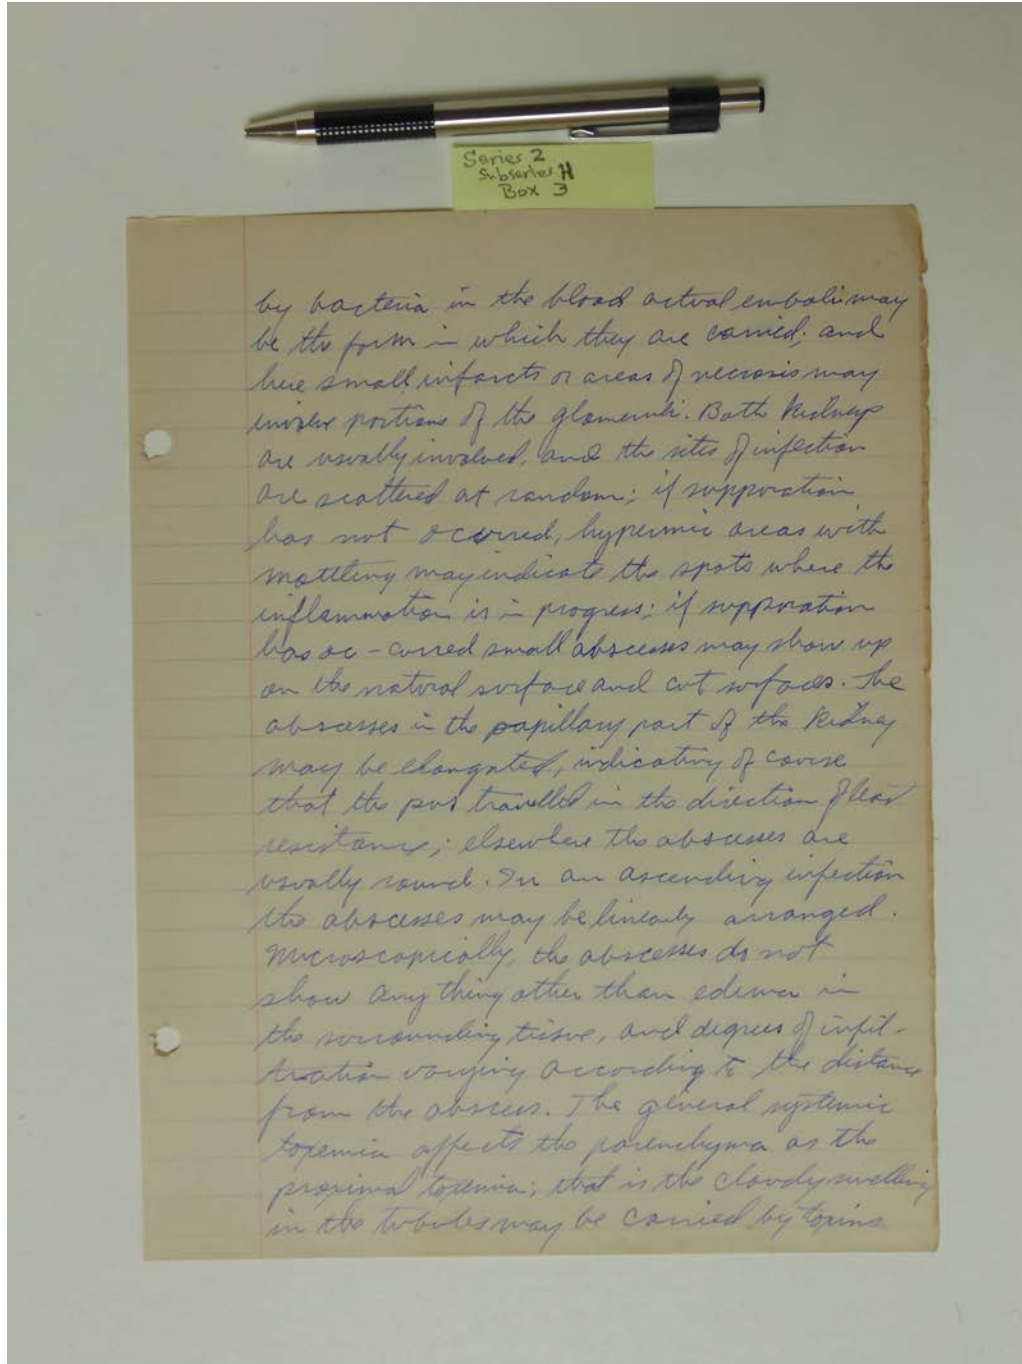 Series 2
Subseries H
Box 3
by bacteria in the blood actual emboli may
be the form in which they are carried; and
here small infarcts or areas of necrosis may
involve portions of the glomeruli. Both Kidneys
are usually involved, and the sites of infection
are scattered at random; if suppuration
has not occurred, hypermic areas with
mottling may indicate the spots where the
inflammation is in progress; if suppuration
has oc-curred small abscesses may show up
on the natural surface and cut surfaces. The
abscesses in the papillary part of the Kidney
may be elongated, indicating of course
that the pus travelled in the direction of least
resistance; elsewhere the abscesses are
usually round. In an ascending infection
the abscesses may be linearly arranged.
Microscopically, the abscesses do not
show any thing other than edema in
the surrounding tissue, and degrees of infil-
tration varying according to the distance
from the abscess. The general systemic
toxemia affects the parenchyma as the
proximal toxemia; that is the cloudy swelling
in the tubules may be carried by toxins